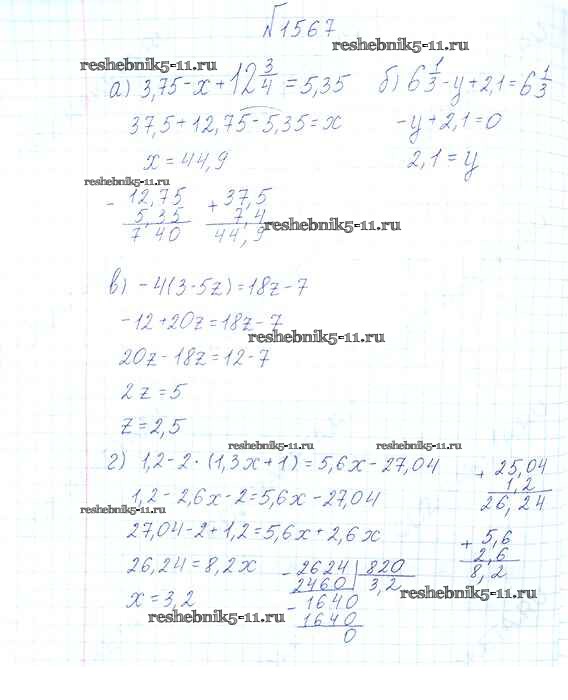 №1567
reshebnik5-11.ru
reshebnik5-11.ru
а) 3,75-x+12 3/4=5,35 б) 6 1/3-y+2,1=6 1/3
37,5+12,75-5,35=x -y+2,1=0
x=44,9 2,1=y
reshebnik5-11.ru
- 12,75 + 37,5
5,35 7,4
7 40 44,9
reshebnik5-11.ru
в) -4(3-5z)=18z-7
-12+20z=18z-7
reshebnik5-11.ru
20z-18z=12-7
2z=5
z=2,5
reshebnik5-11.ru reshebnik5-11.ru
г) 1,2-2·(1,3x+1)=5,6x-27,04 + 25,04
1,2
1,2-2,6x-2=5,6x-27,04 26,24
reshebnik5-11.ru
27,04-2+1,2=5,6x+2,6x + 5,6
2,6
26,24=8,2x - 2624 | 820 8,2
2460 3,2
reshebnik5-11.ru
x=3,2 - 1640
reshebnik5-11.ru
1640
0